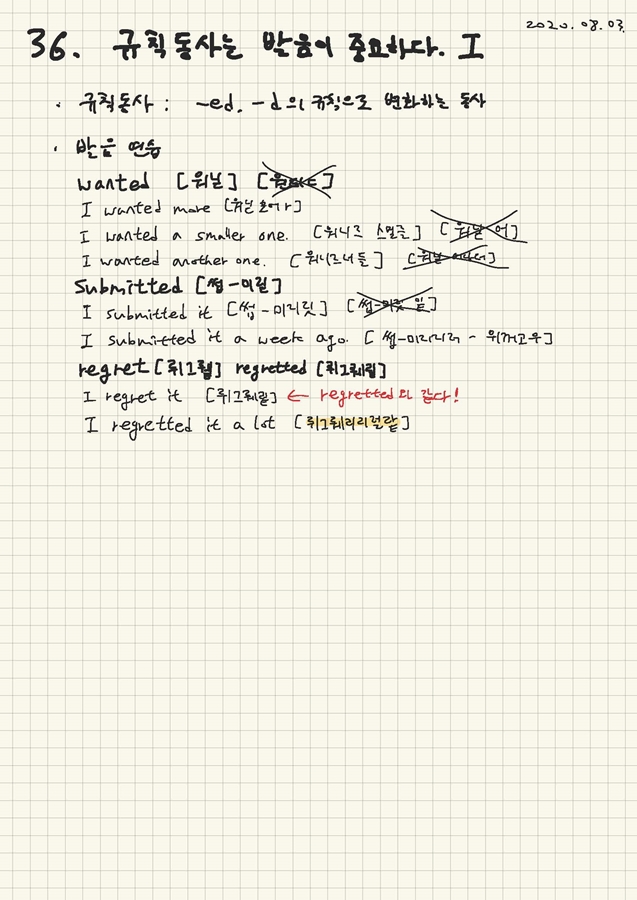 2020. 08. 03.
36. 규칙동사는 발음이 중요하다. I
· 규칙동사 : -ed, -d의 규칙으로 변화하는 동사
· 발음 연습
wanted [워닏]
I wanted more
I wanted a smaller one. [워니르 스멀른]
I wanted another one. [워니르너든]
submitted [썹-미맅]
I submitted it [썹-미리맅]
I submitted it a week ago.
regret [뤼그뤹] regretted [뤼그뤠맅]
I regret it [뤼그뤠맅] ← regretted와 같다!
I regretted it a lot [뤼그뤠리리럴랕]